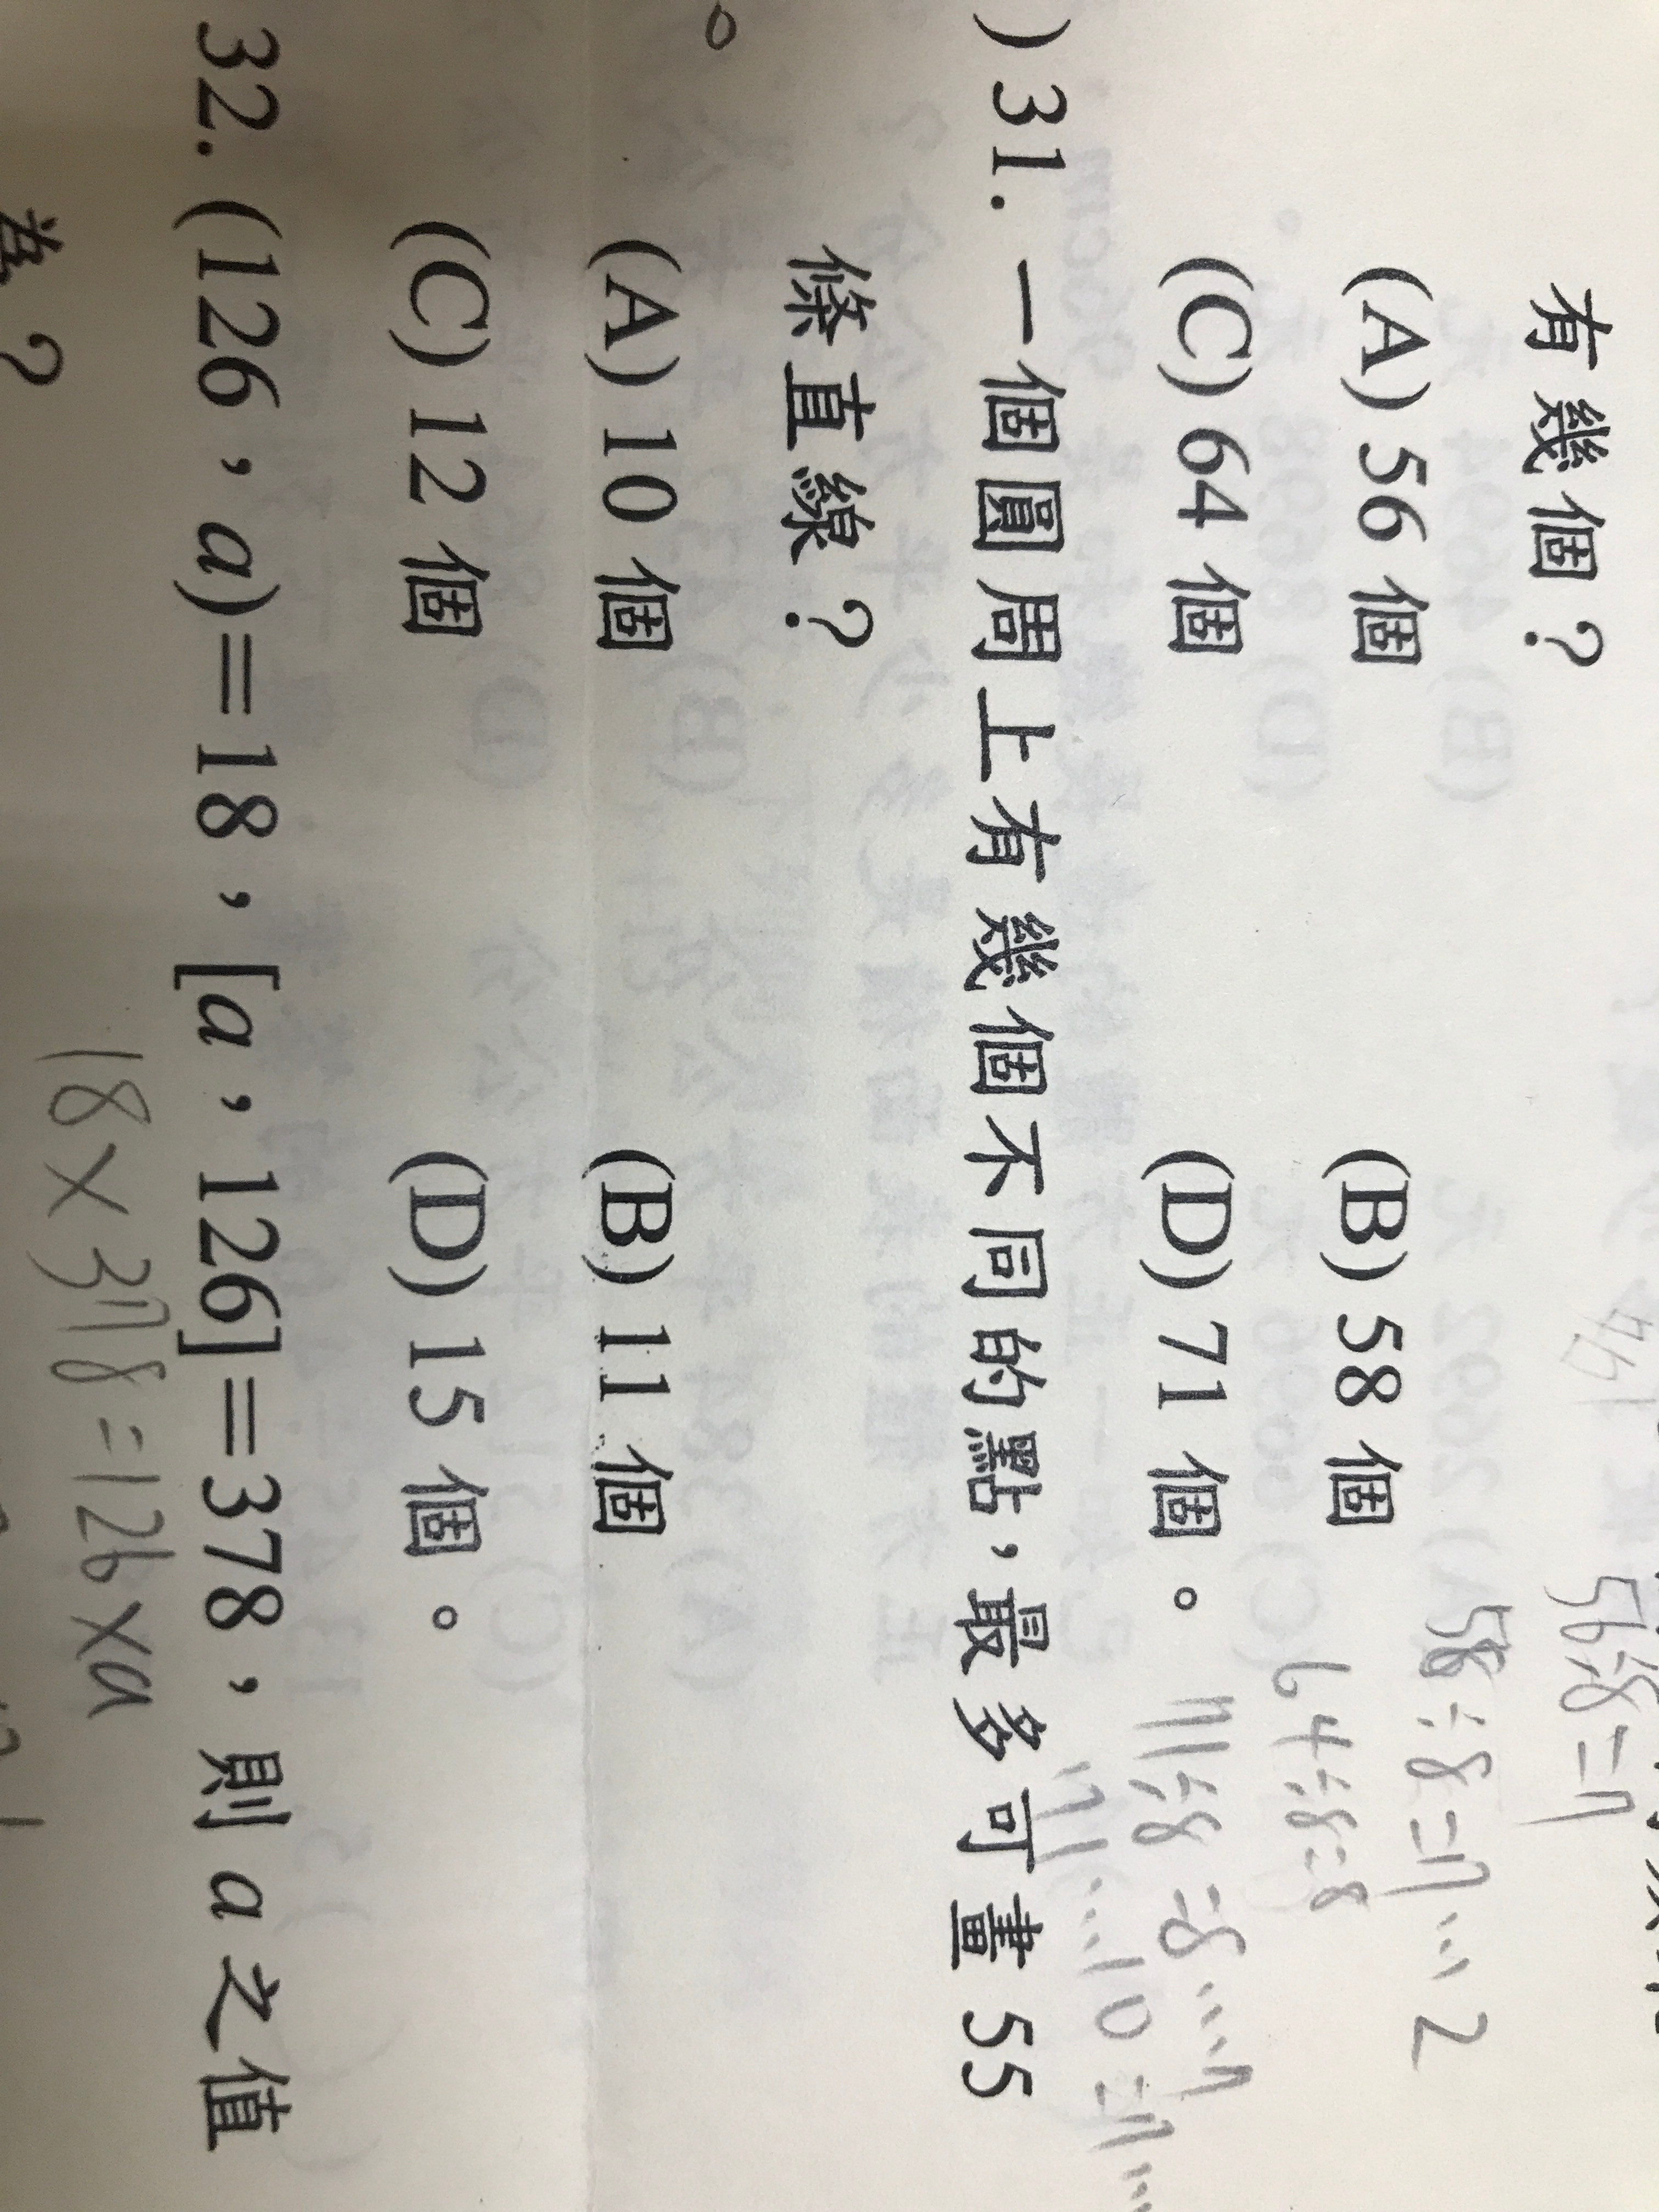 有幾個？
56÷8=7
(A) 56 個 (B) 58 個
58÷8=7…2
(C) 64 個 (D) 71 個。
64÷8=8
71÷8=8…7
) 31. 一個圓周上有幾個不同的點，最多可畫 55
條直線？
(A) 10 個 (B) 11 個
(C) 12 個 (D) 15 個。
32. (126，a)＝18，[a，126]＝378，則 a 之值
18×378=126×a
為？